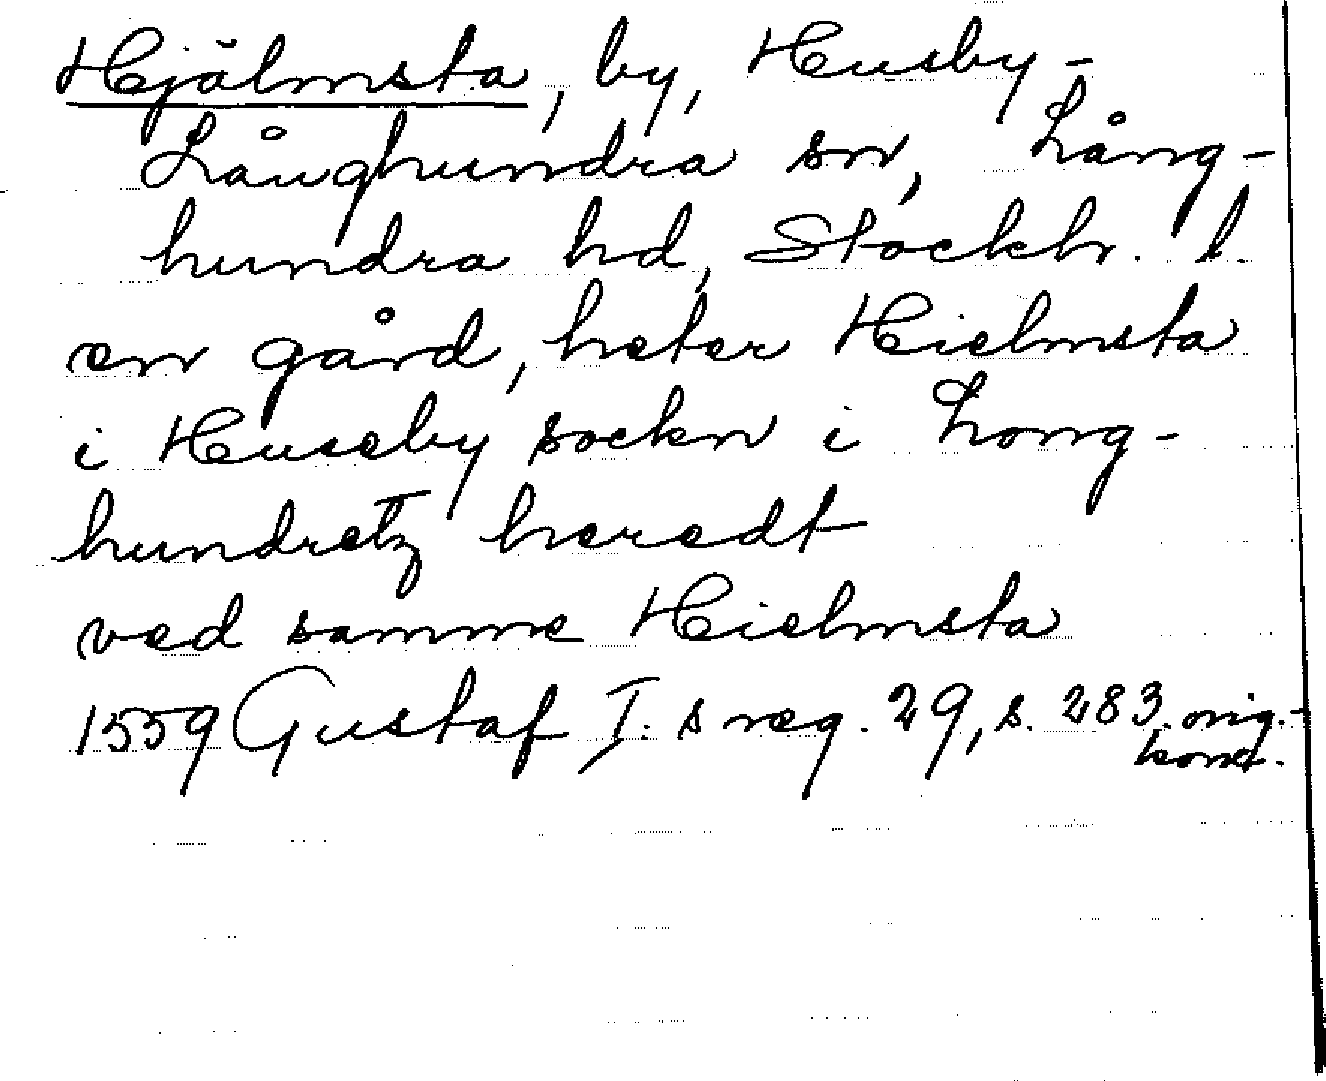 Hjälmsta, by, Husby-
Långhundra sn, Lång-
hundra hd, Stockh. l.
en gård, heter Hielmsta
i Huseby sockn i Long-
hundretz heredt
ved samme Hielmsta
1559 Gustaf I:s reg. 29, s. 283. orig.-
konc.